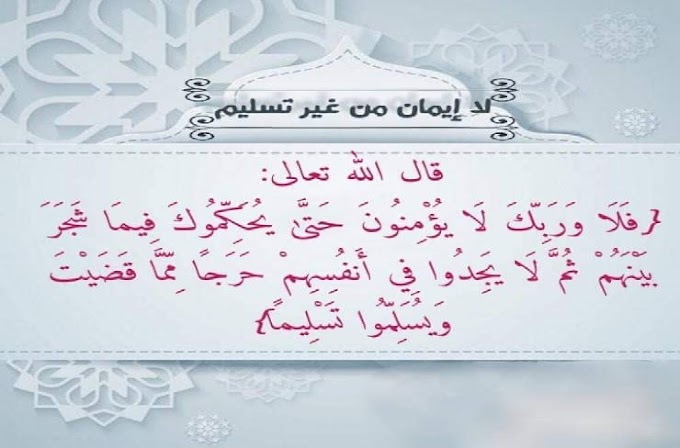 لا إيمان من غير تسليم
قال الله تعالى:
{فَلَا وَرَبِّكَ لَا يُؤْمِنُونَ حَتَّىٰ يُحَكِّمُوكَ فِيمَا شَجَرَ
بَيْنَهُمْ ثُمَّ لَا يَجِدُوا فِي أَنفُسِهِمْ حَرَجًا مِمَّا قَضَيْتَ
وَيُسَلِّمُوا تَسْلِيماً}